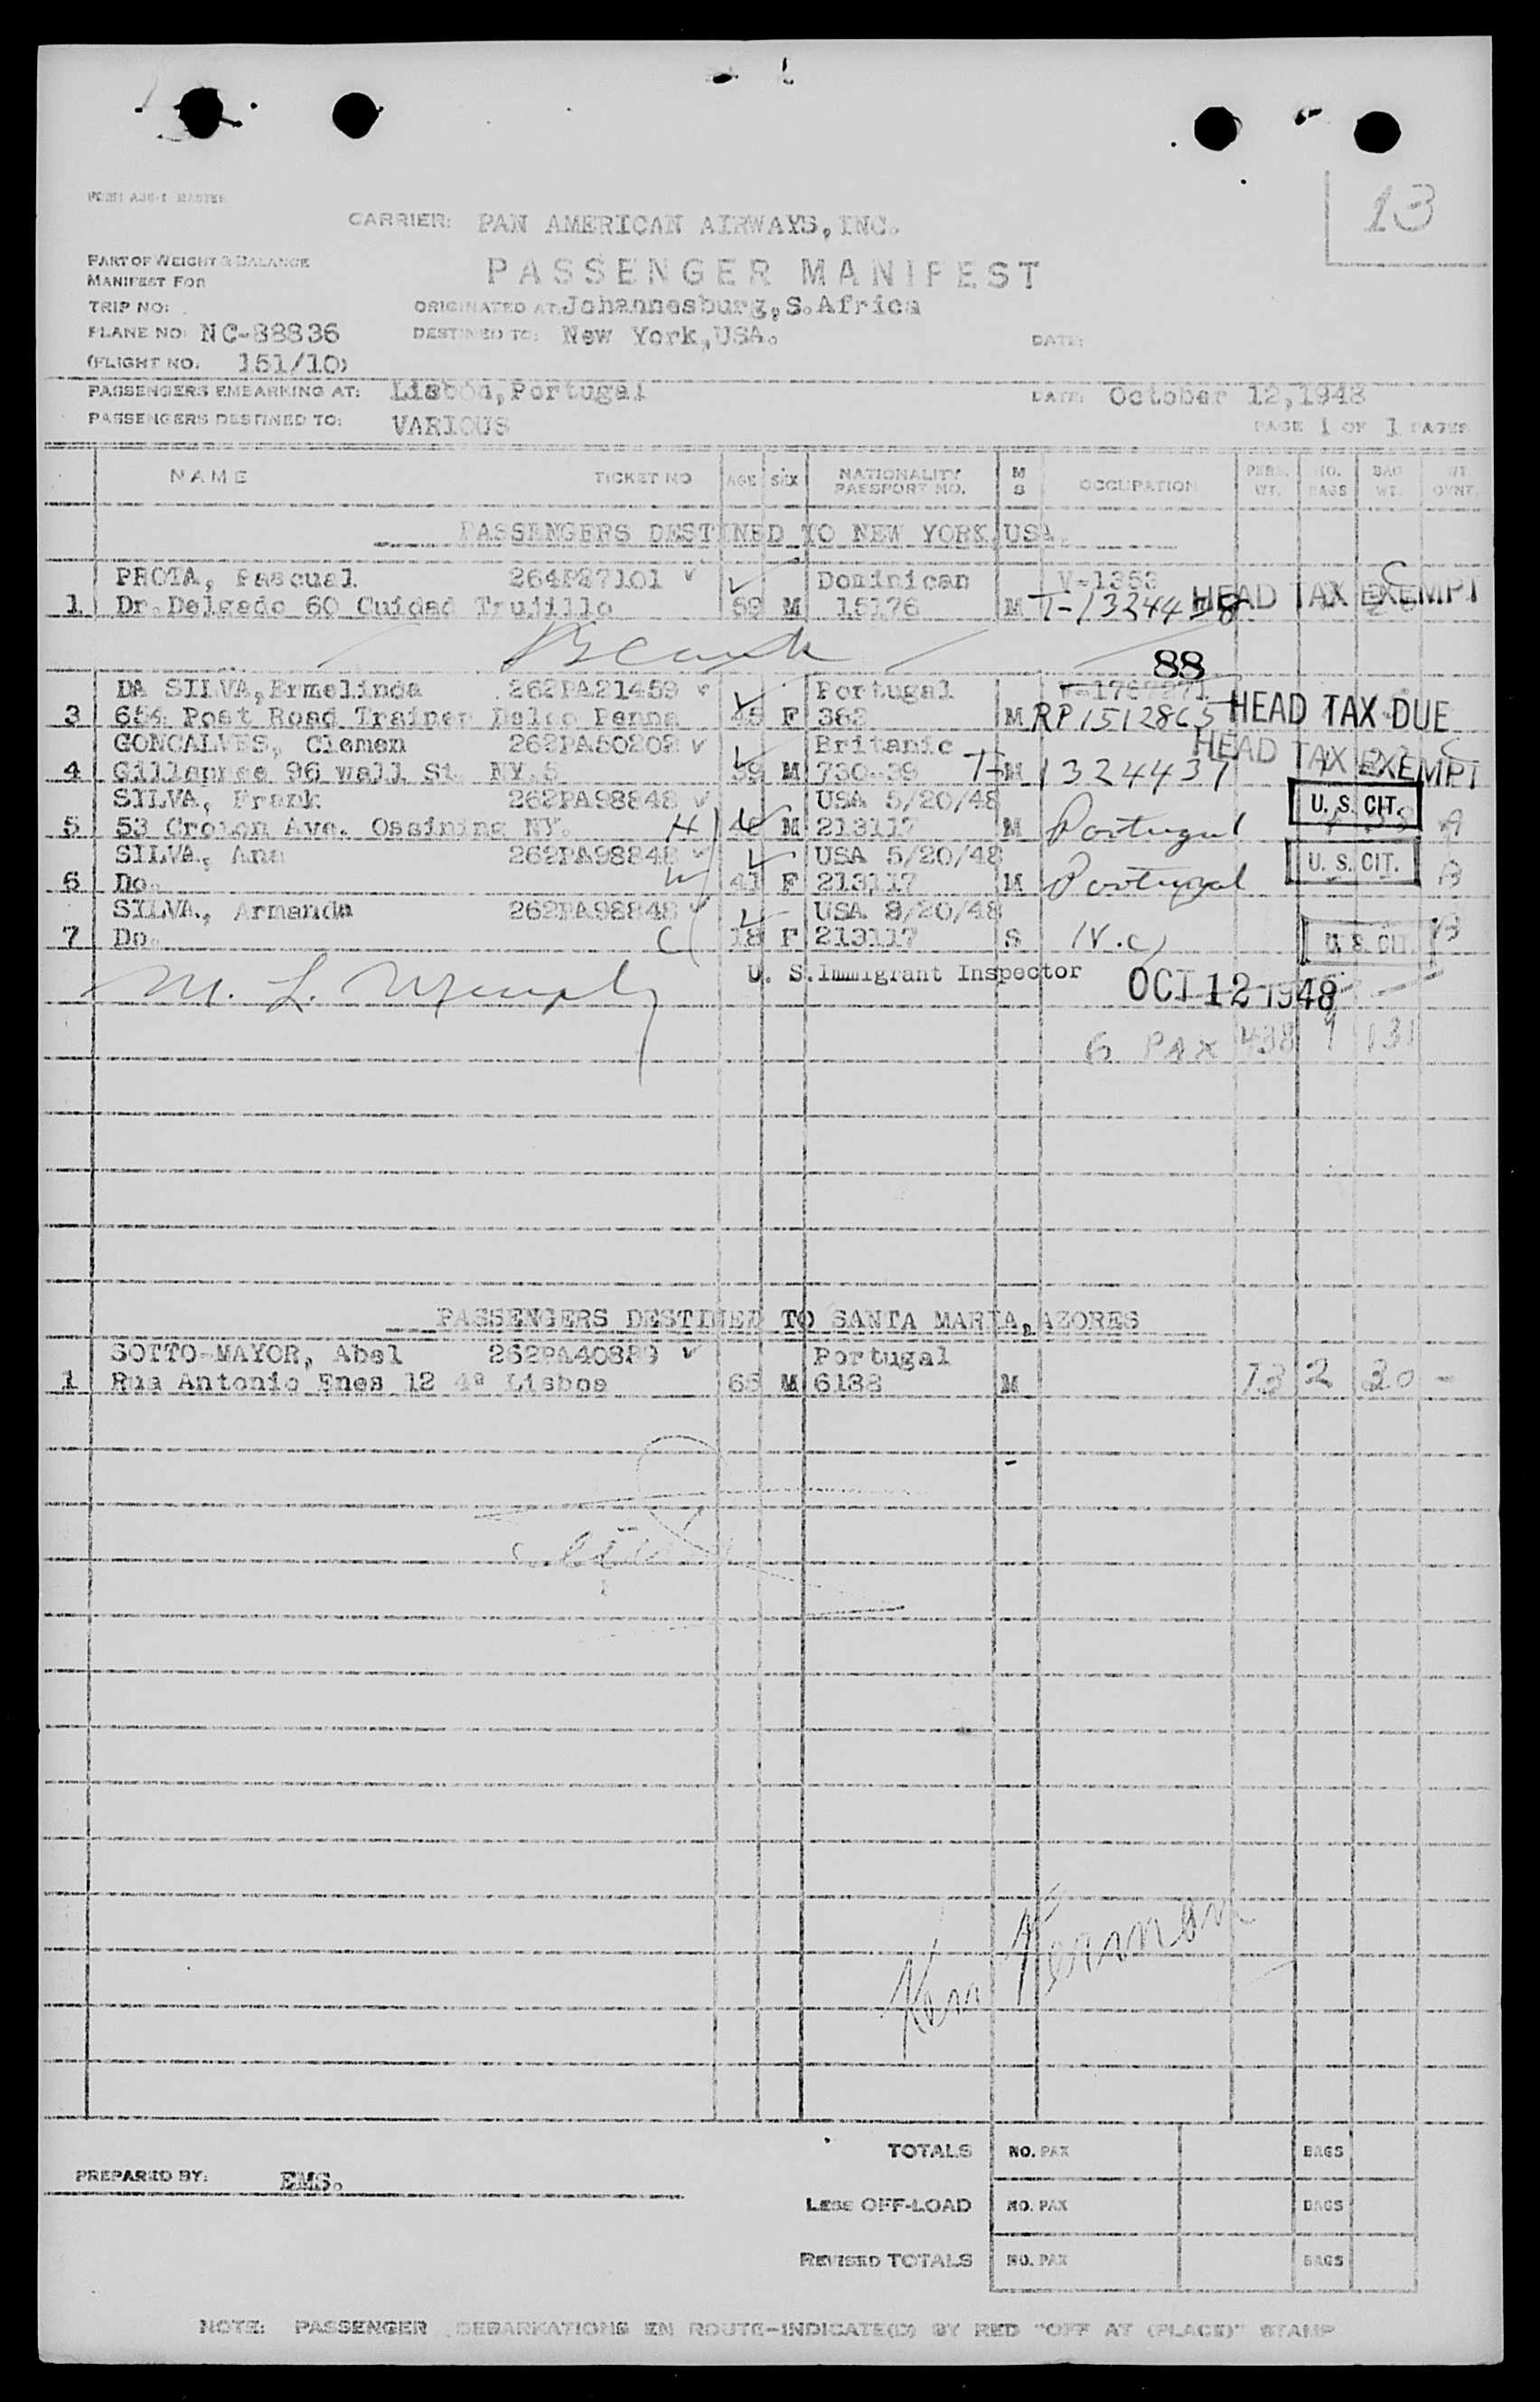 FORM ADR-1 MASTER
13
CARRIER: PAN AMERICAN AIRWAYS, INC.
PART OF WEIGHT & BALANCE
PASSENGER MANIFEST
MANIFEST FOR
TRIP NO: ORIGINATED AT: Johannesburg, S. Africa
PLANE NO: NC-88836 DESTINED TO: New York, USA. DATE:
(FLIGHT NO. 151/10)
PASSENGERS EMBARKING AT: Lisbon, Portugal DATE: October 12, 1948
PASSENGERS DESTINED TO: VARIOUS PAGE 1 OF 1 PAGES
NAME TICKET NO AGE SEX NATIONALITY PASSPORT NO. M S OCCUPATION PERS. WT. NO. BAGS BAG WT. WT. OVNT.
PASSENGERS DESTINED TO NEW YORK, USA.
PROTA, Pascual 264P27101 Dominican V-1353
1 Dr. Delgado 60 Cuidad Trujillo 59 M 15176 M T-1324438 HEAD TAX EXEMPT
Blank
88
DA SILVA, Ermelinda 262PA21459 Portugal
3 654 Post Road Trainer Delco Penna 45 F 362 M RP1512865 HEAD TAX DUE
GONCALVES, Clemen 262PA50202 Britanic HEAD TAX EXEMPT
4 Gillespree 96 wall St. NY.5 39 M 730-39 M T-1324437
SILVA, Frank 262PA98848 USA 5/20/48 U. S. CIT.
5 53 Croton Ave. Ossining NY. H M 213117 M Portugal A
SILVA, Ana 262PA98848 USA 5/20/48 U. S. CIT.
6 Do. W 41 F 213117 M Portugal B
SILVA, Armanda 262PA98848 USA 8/20/48
7 Do. C 18 F 213117 S N.C. U. S. CIT. B
M. L. Murphy U. S. Immigrant Inspector OCT 12 1948
6 PAX 438 9 131
PASSENGERS DESTINED TO SANTA MARIA, AZORES
SOTTO-MAYOR, Abel 262PA40889 Portugal
1 Rua Antonio Enes 12 4ª Lisboa 65 M 6138 M 73 2 30 -
TOTALS NO. PAX BAGS
PREPARED BY: EMS.
LESS OFF-LOAD NO. PAX BAGS
REVISED TOTALS NO. PAX BAGS
NOTE: PASSENGER DEBARKATIONS EN ROUTE-INDICATE(D) BY RED "OFF AT (PLACE)" STAMP